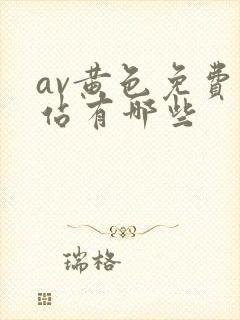 av黄色免費
佔有哪些
瑞格